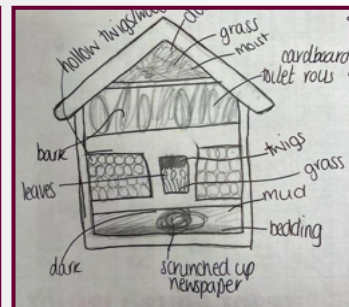 hollow twigs/
grass
moist
cardboard
toilet rolls
bark
twigs
leaves
grass
mud
bedding
dark
scrunched up
newspaper